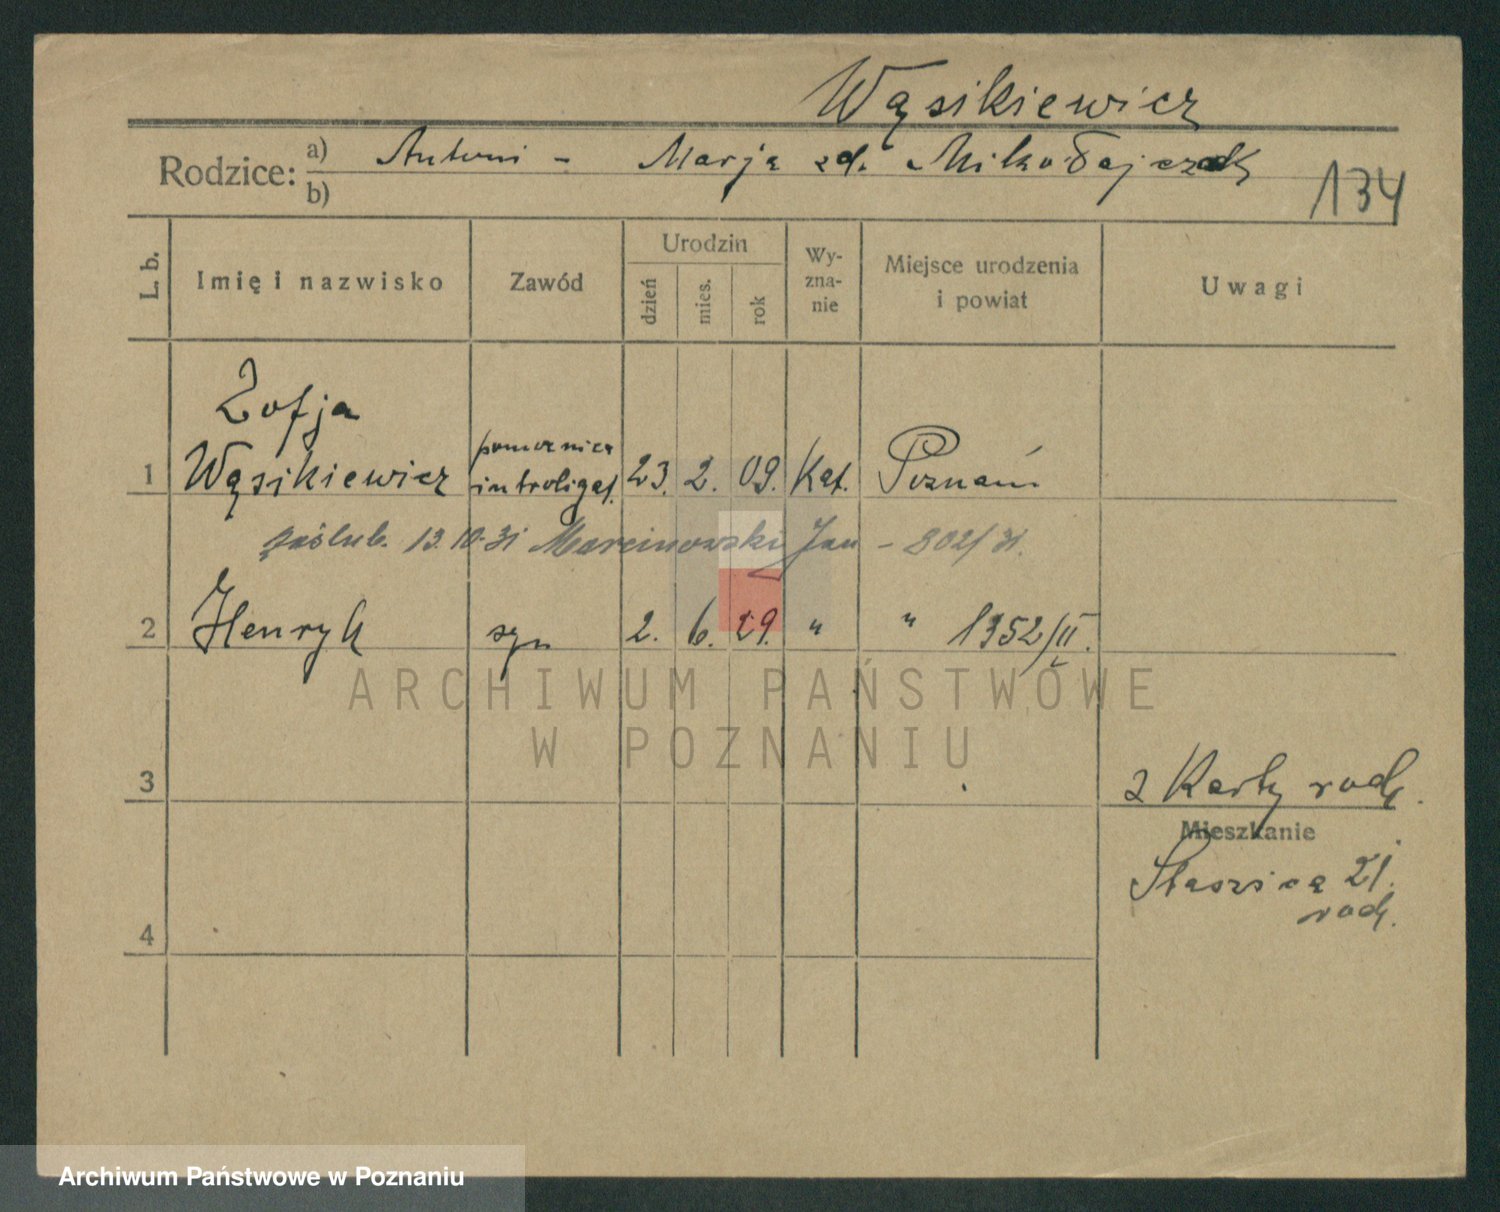 Wąsikiewicz
Rodzice: a) Antoni - Marja zd. Mikołajczak
b)
134
L. b.
Imię i nazwisko
Zawód
Urodzin
dzień
mies.
rok
Wy-
zna-
nie
Miejsce urodzenia
i powiat
Uwagi
Zofja
1 Wąsikiewicz pomocnica introligat. 23. 2. 09. Kat. Poznań
zaślub. 13.10.31 Marcinowski Jan - 802/31.
2 Henryk syn 2. 6. 29. " " 1352/II.
ARCHIWUM PAŃSTWOWE
W POZNANIU
3
2 Karty rodz.
Mieszkanie
Staszica 21.
rodz.
4
Archiwum Państwowe w Poznaniu